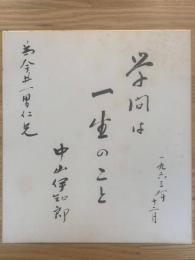 一九六三年十二月
学問は
一生のこと
中山伊知郎
為今井一男仁兄